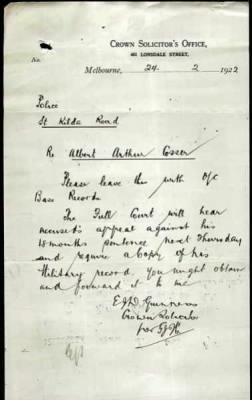 CROWN SOLICITOR'S OFFICE,
462 LONSDALE STREET,
No.
Melbourne, 24. 2 1922
Police
St Kilda Road
Re Albert Arthur
Please leave this with O/c
Base Records
The Full Court will hear
accused's appeal against his
18 months sentence next Thursday
and require a copy of his
Military record. You might obtain
and forward it to me
Crown Solicitor
per